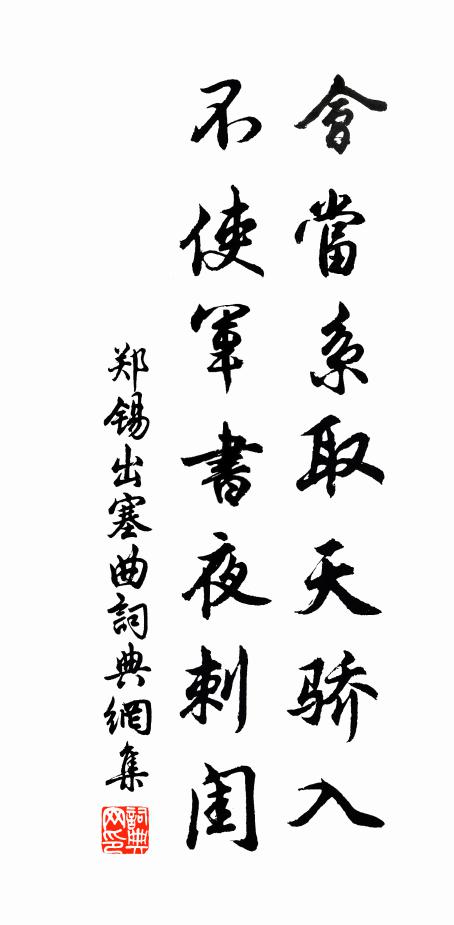 會當系取天骄入
不使軍書夜刺闺
郑锡出塞曲詞典網集
詞典網印